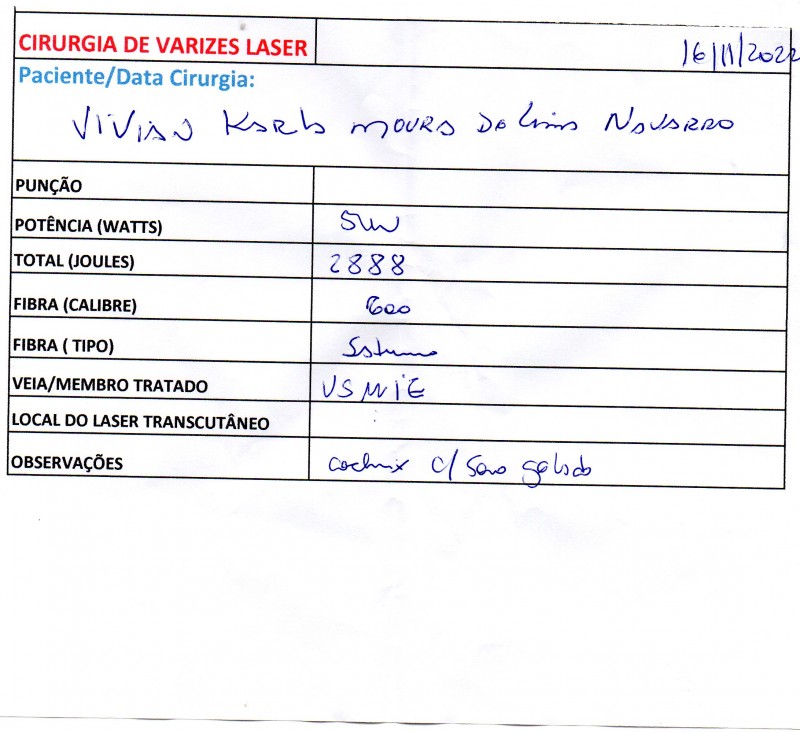 CIRURGIA DE VARIZES LASER 16/11/2022
Paciente/Data Cirurgia:
VIVIAN Karla Moura De Lima Navarro
PUNÇÃO
POTÊNCIA (WATTS) 5W
TOTAL (JOULES) 2888
FIBRA (CALIBRE) 600
FIBRA ( TIPO)
VEIA/MEMBRO TRATADO VSMIE
LOCAL DO LASER TRANSCUTÂNEO
OBSERVAÇÕES c/ Soro gelado